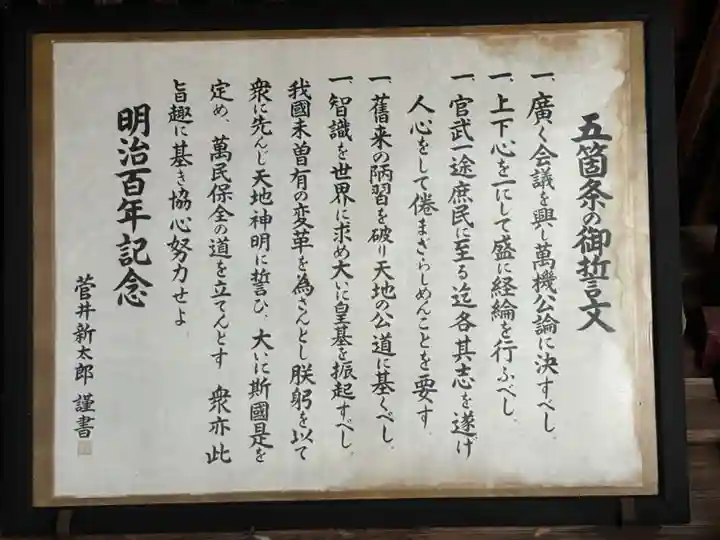 五箇条の御誓文
一、廣く会議を興し萬機公論に決すべし、
一、上下心を一にして盛に経綸を行ふべし、
一、官武一途庶民に至る迄各其志を遂げ
人心をして倦まざらしめんことを要す、
一、舊来の陋習を破り天地の公道に基くべし、
一、智識を世界に求め大いに皇基を振起すべし、
我國未曽有の変革を為さんとし朕躬を以て
衆に先んじ天地神明に誓ひ、大いに斯國是を
定め、萬民保全の道を立てんとす 衆亦此
旨趣に基き協心努力せよ、
明治百年記念
菅井新太郎 謹書